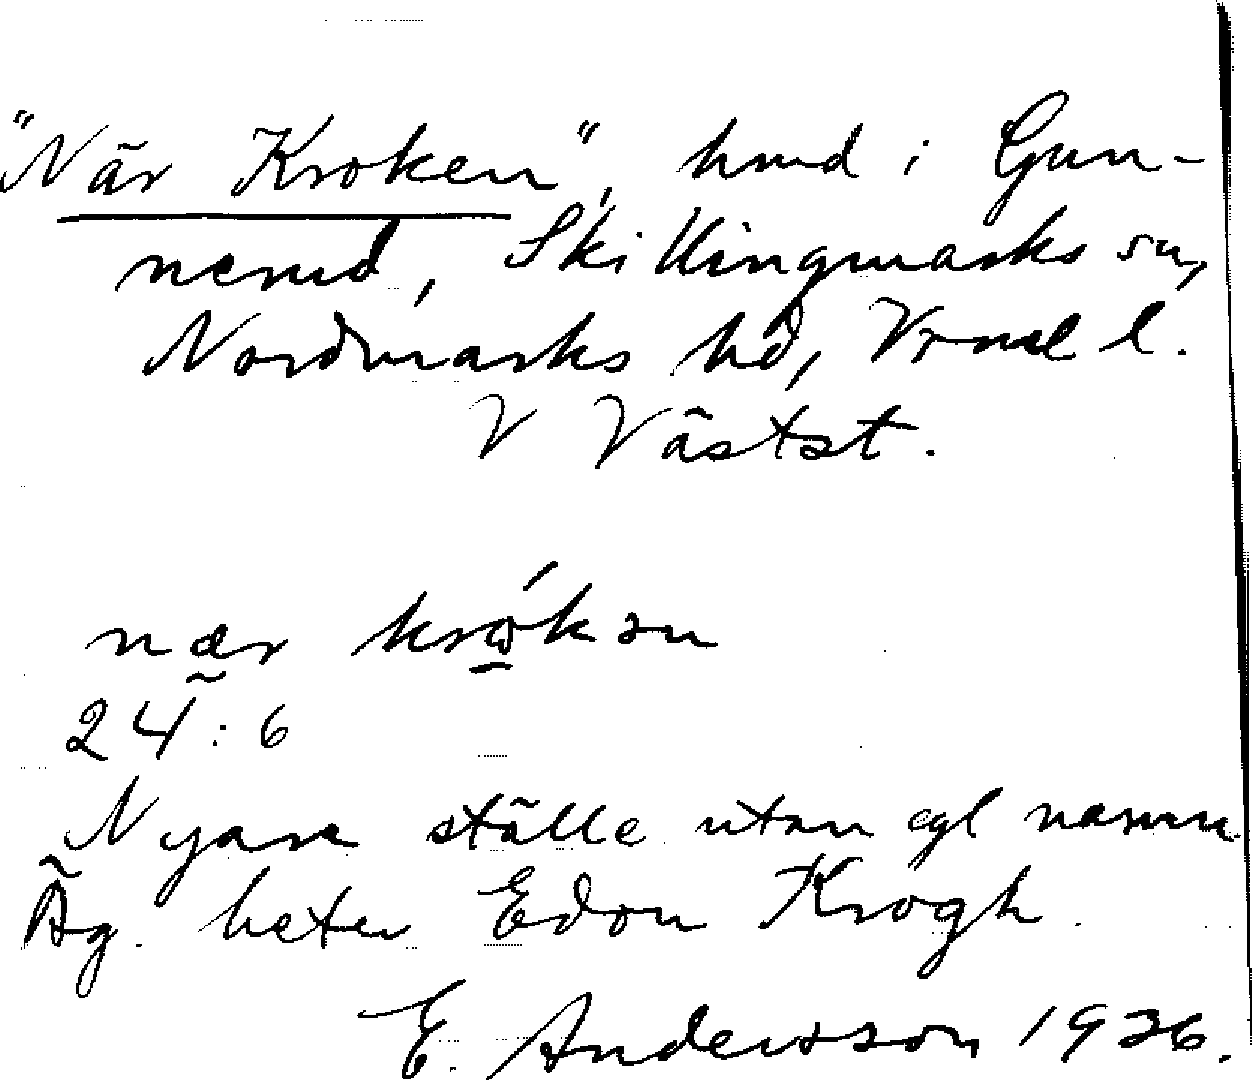 "När Kroken", hmd i Gun-
nerud, Skillingmarks sn,
Nordmarks hd, Vrml l.
V Västst.
nær krókən
24:6
Nyare ställe utan egl namn
Äg. heter Edon Krogh.
E. Andersson 1936.